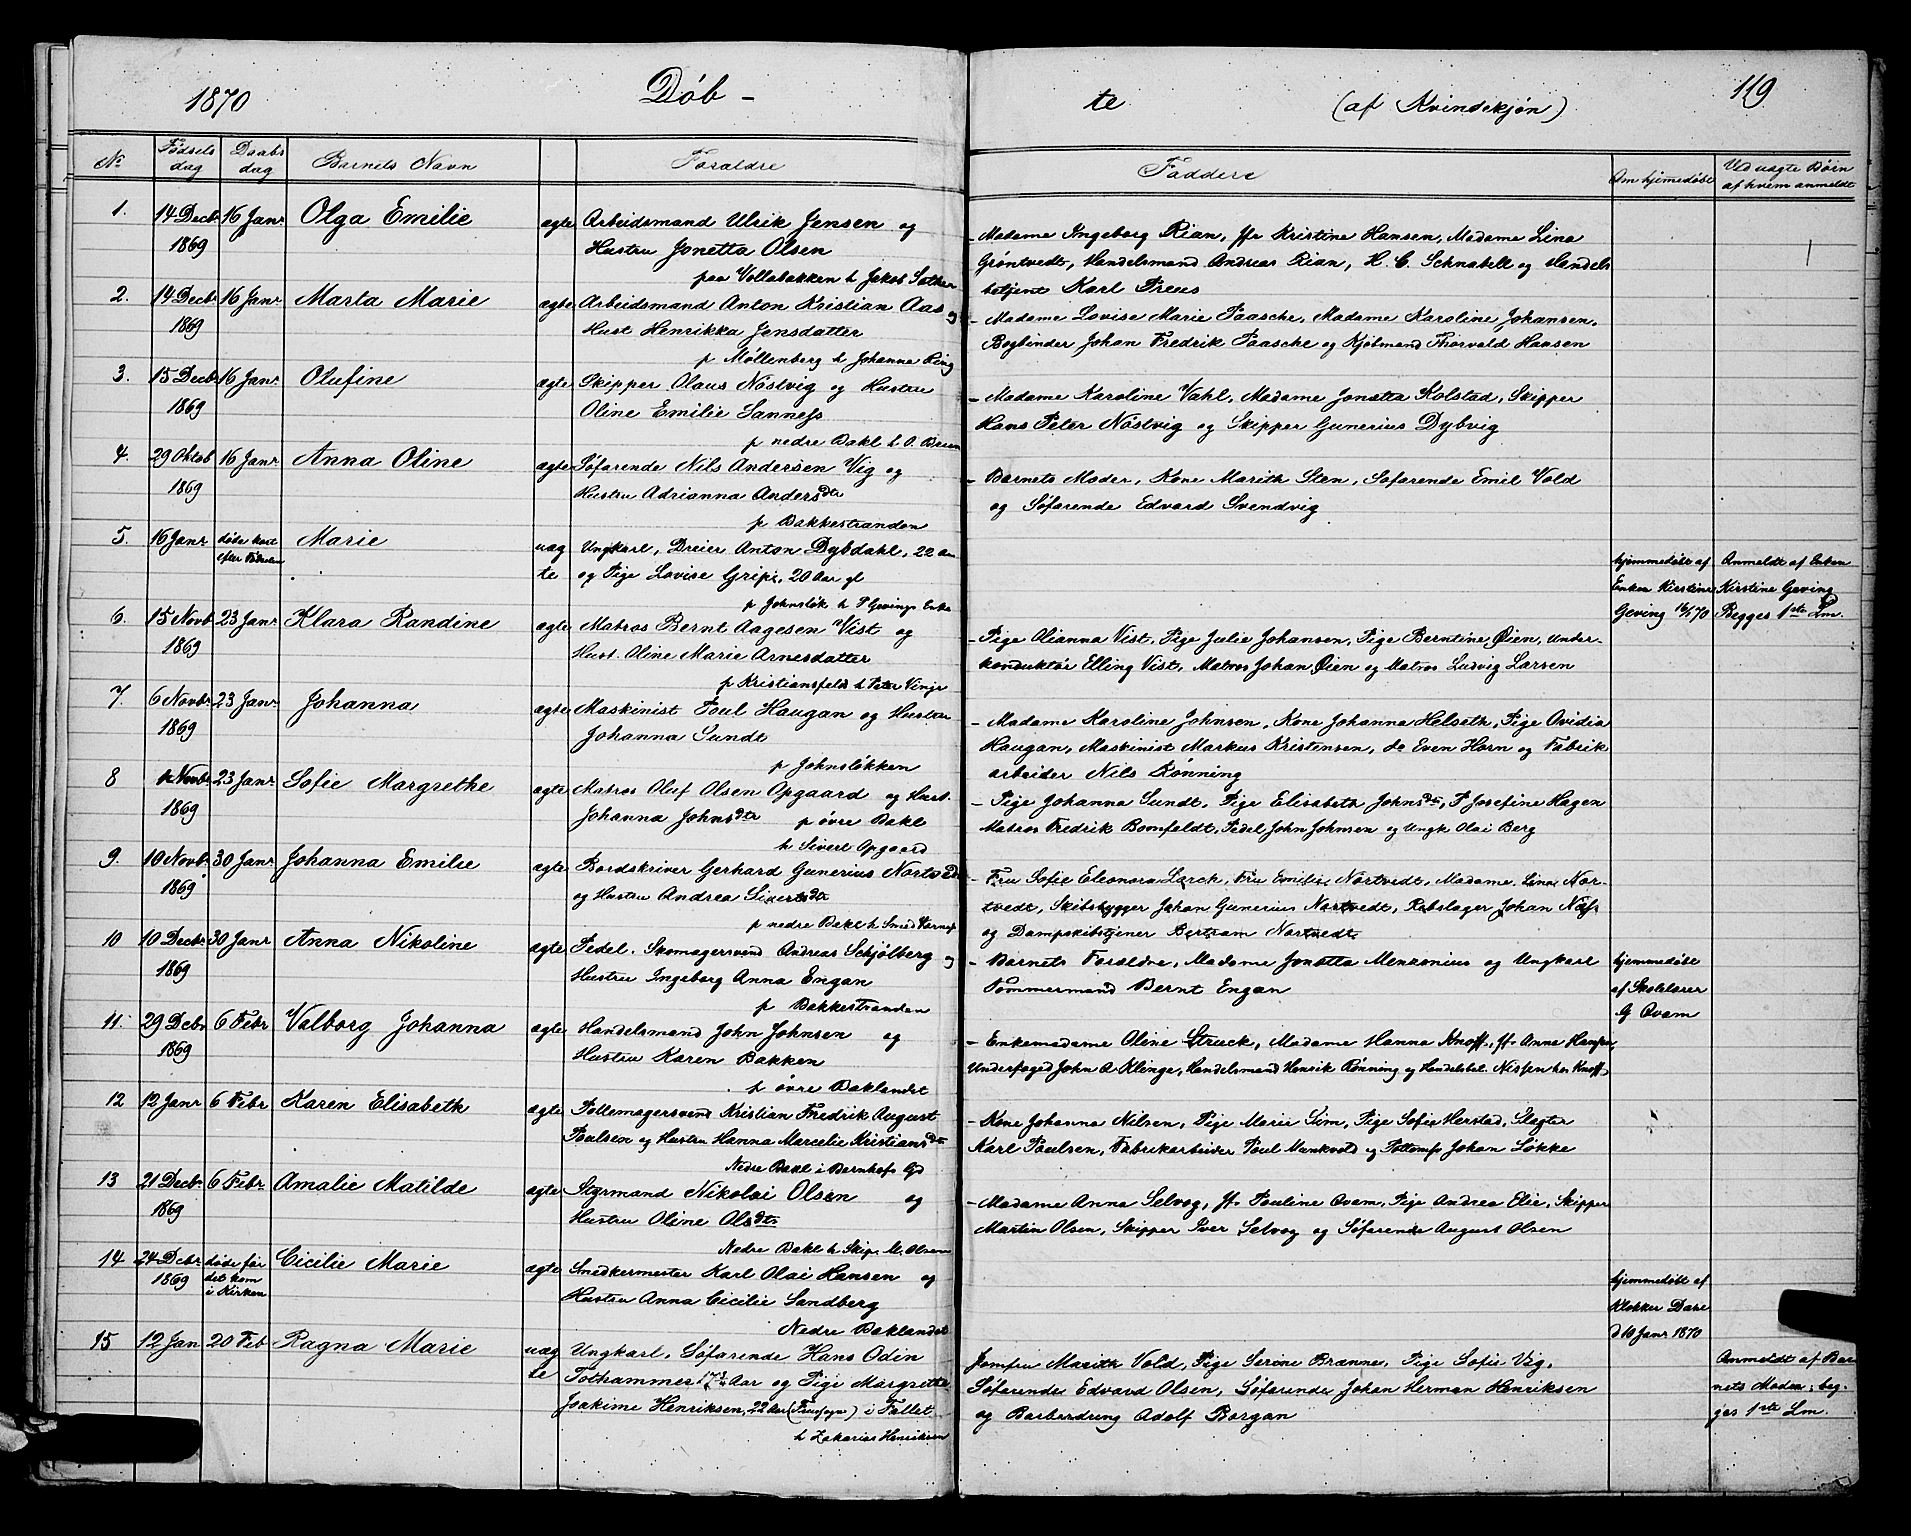 1870 Döb - te (af Kvindekjøn) 119
No Fødsels dag Daabs dag Barnets Navn Forældre Faddere Om hjemedøbt Ved uægte Børn af hvem anmeldt
1. 14 Decbr 16 Janr Olga Emilie ægte Arbeidsmand Ulrik Jensen og
1869 Hustru Jonetta Olsen
paa Vollabakken h Jakob
- Madame Ingeborg Rian, Kristine Hansen, Madame Lina
Grøntvedt, Handelsmand Andreas Rian, H. C. Schnabell og Handels
betjent Karl Preus
2. 14 Decbr 16 Janr Marta Marie ægte Arbeidsmand Anton Kristian Aas og
1869 Hust Henrikka Jensdatter
p Møllenberg h Johanna Ring
- Madame Lovise Marie Paasche, Madame Karoline Johansen,
Bogbinder Johan Fredrik Paasche og Kjøbmand Thorvald Hansen
3. 15 Decbr 16 Janr Olufine ægte Skipper Olaus Nöstvig og Hustru
1869 Oline Emilie Sanness
p nedre Bakl h O.
- Madame Karoline Vahl, Madame Jonetta Kolstad, Skipper
Hans Peter Nöstvig og Skipper Gunerius Dybvig
4. 29 Oktob 16 Janr Anna Oline ægte Søfarende Nils Andersen Vig og
1869 Hustru Adrianna Andersdtr
p Bakkestranden
- Barnets Moder, Kone Marith Sten, Søfarende Emil Vold
og Søfarende Edvard Svendvig
5. 16 Janr døde kort efter Fødselen Marie uæg te Ungkarl, Dreier Anton Dybdahl, 22 Aar
og Pige Lovise Grip, 20 Aar gl
p Johnsløk h P Gevings Enke
hjemmedøbt af
Enken Kirstine
Geving 16/1 70
Anmeldt af Enken
Kirstine Geving
Begges 1ste Lm.
6. 15 Novb. 23 Janr Klara Randine ægte Matros Bernt Aagesen Vist og
1869 Hust. Oline Marie Arnesdatter
p Kristiansfeld h Peter Vinje
- Pige Olianna Vist, Pige Julie Johansen, Pige Berntine Øien, Under-
konduktør Elling Vist, Matros Johan Øien og Matros Ludvig Larsen
7. 6 Novbr. 23 Janr. Johanna ægte Maskinist Poul Haugan og Hustru
1869 Johanna Sundt
p Johnsløkken
- Madame Karoline Johnsen, Kone Johanna Helseth, Pige Ovidia
Haugan, Maskinist Markus Kristensen, do Even Horn og Fabrik
arbeider Nils Rønning
8 Novbr. 23 Janr. Sofie Margrethe ægte Matros Oluf Olsen Opgaard og Hust.
1869 Johanna Johnsdtr p øvre Bakl
h Sivert Opgaard
- Pige Johanna Sundt, Pige Elisabeth Johnsdtr, P Josefine Hagen
Matros Fredrik Bomfeldt, Pedel John Johnsen og Ungk Olai Berg
9. 10 Novb. 30 Janr Johanna Emilie ægte Bordskriver Gerhard Gunerius Nortvedt
1869 og Hustru Andrea Sivertsdtr
p nedre Bakl h Smed
- Fru Sofie Eleonora Larck, Fru Emilie Nortvedt, Madame Lina Nor-
tvedt, Skibsbygger Johan Gunerius Nortvedt, Rebslager Johan Næss
og Dampskibstjener Bertram Nortvedt
10 10 Decbr 30 Janr Anna Nikoline ægte Pedel. Skomagersvend Andreas Schjölberg og
1869 Hustru Ingeborg Anna Engan
p Bakkestranden
- Barnets Forældre, Madame Jonetta Menzonius og Ungkarl
Tømmermand Bernt Engan
hjemmedøbt
af Skolelærer
G Qvam
11. 29 Dcbr 6 Febr Valborg Johanna ægte Handelsmand John Johnsen og
1869 Hustru Karen Bakken
p øvre Baklandet
- Enkemadame Oline Struck, Madame Hanna Knoff, Anna Hansen,
Underfoged John A Klinge, Handelsmand Henrik Rønning og Handelsbet. Nissen hos Knoff
12 12 Janr 6 Febr Karen Elisabeth ægte Pottemagersvend Kristian Fredrik August
Poulsen og Hustru Hanna Mercelie Kristiansdtr
Nedre Bakl i Bernhofs Gd
- Kone Johanna Nilsen, Pige Marie Sum, Pige Sofie Herstad, Slagter
Karl Poulsen, Fabrikarbeider Poul Munkvold og Pottems Johan Løkke
13 21 Decbr. 6 Febr. Amalie Matilde ægte Styrmand Nikolai Olsen og
1869 Hustru Oline Olsdtr
Nedre Bakl h Skip. M. Olsen
- Madame Anna Selvog, Pauline Qvam, Pige Andrea Elie, Skipper
Martin Olsen, Skipper Iver Selvog og Søfarende August Olsen
14 24 Dcbr døde før det kom i Kirken Cicilie Marie ægte Smedkermester Karl Olai Hansen og
1869 Hustru Anna Cicilie Sandberg
Nedre Baklandet
hjemmedøbt af
Klokker Dase
d 10 Janr 1870
15 12 Jan 20 Feb Ragna Marie uæg te Ungkarl, Søfarende Hans Odin
Aar og Pige Margrethe
Joakime Henriksen, 22 Aar i Fallet.
h Zakarias Henriksen
Jomfru Marith Vold, Pige Serine Brænne, Pige Sofie Vig,
Søfarende Edvard Olsen, Søfarende Johan Herman Henriksen
og Barberdreng Adolf Borgan
Anmeldt af Bar
nets Moder; beg-
ges 1ste Lm.